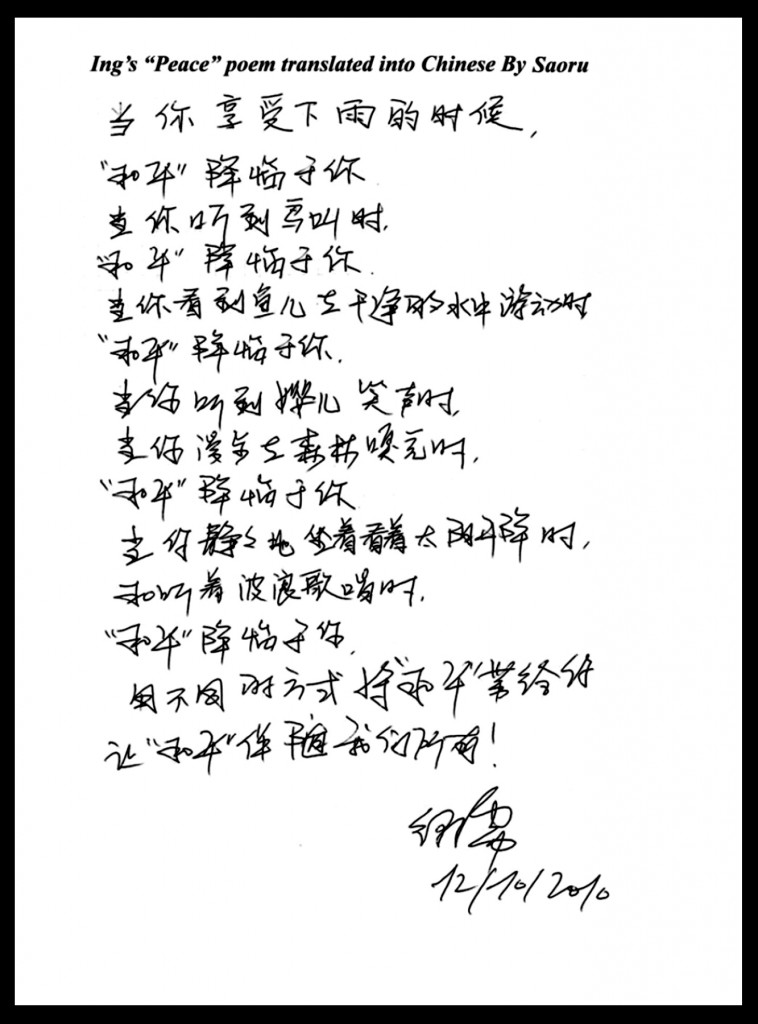 Ing's “Peace” poem translated into Chinese By Saoru
当你享受下雨的时候,
“和平”降临于你
当你听到鸟叫时.
“和平”降临于你.
当你看到鱼儿在干净的水中游动时
“和平”降临于你.
当你听到婴儿笑声时,
当你漫步在森林嗅花时,
“和平”降临于你
当你静々地坐着看着太阳升降时,
和听着波浪歌唱时.
“和平”降临于你.
用不同的方式将“和平”带给你
让“和平”伴随我们所有!
12/10/2010